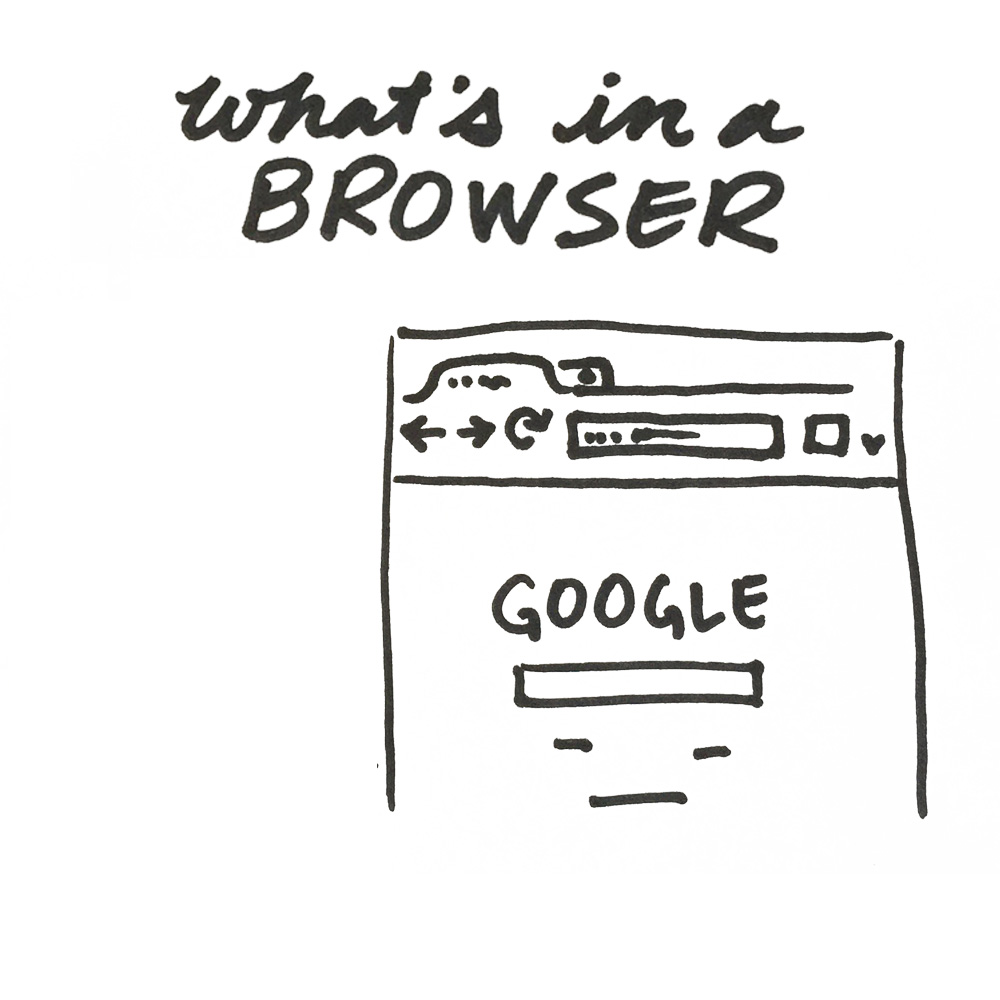 what's in a
BROWSER
GOOGLE